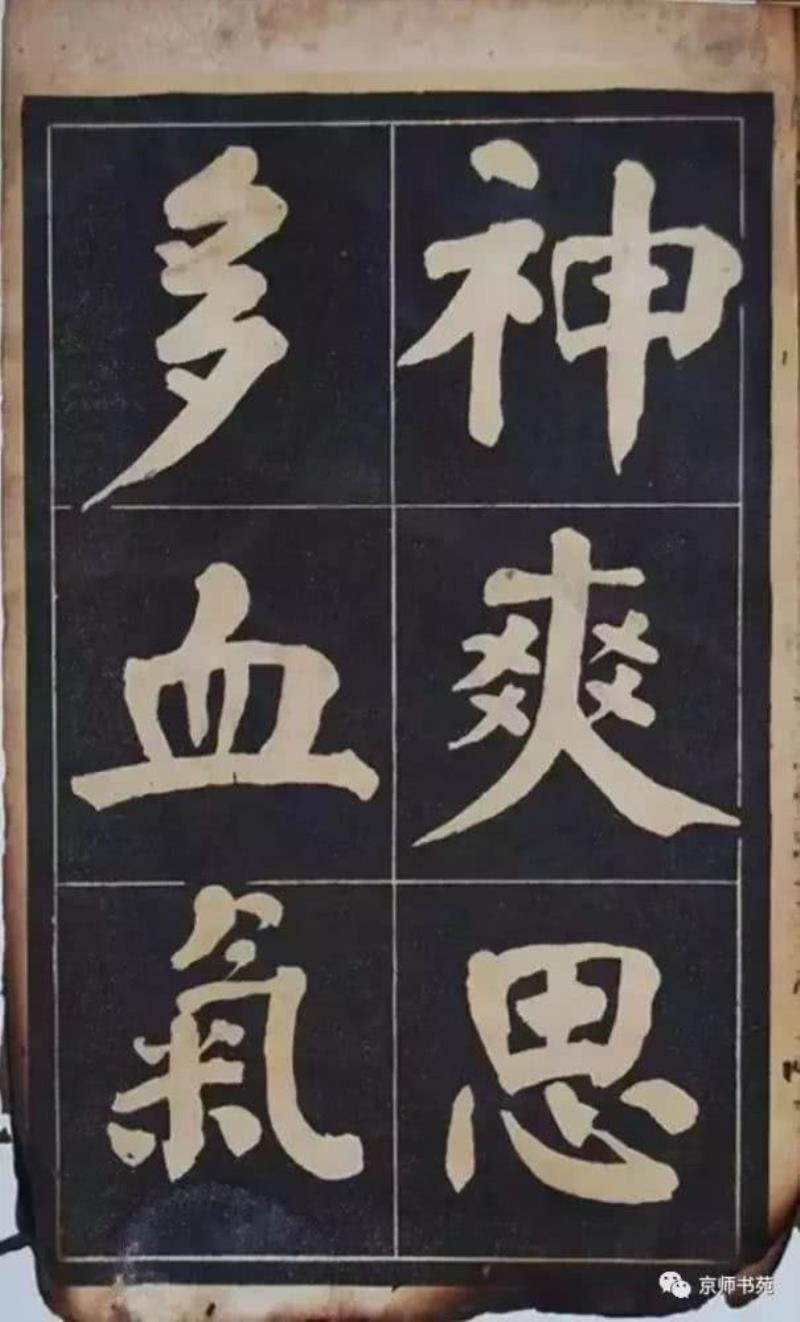 神爽思
多血氣
京师书苑